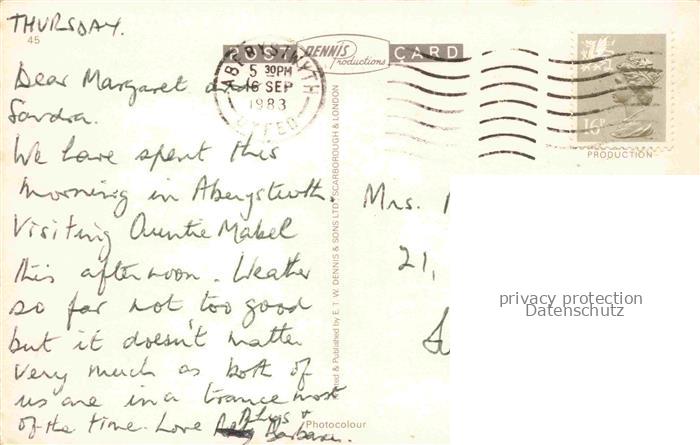 THURSDAY.
45
POST DENNIS Productions CARD
Dear Margaret and
Sandra.
We have spent this
morning in Aberystwyth.
Visiting Auntie Mabel
this afternoon. Weather
so far not too good
but it doesn't matter
very much as both of
us are in a trance most
of the time. Love Rhys +
Barbara.
ABERYSTWYTH
5 30PM
16 SEP
1983
DYFED
16P
PRODUCTION
Mrs.
21,
Printed & Published by E. T. W. DENNIS & SONS LTD., SCARBOROUGH & LONDON
Photocolour
privacy protection
Datenschutz